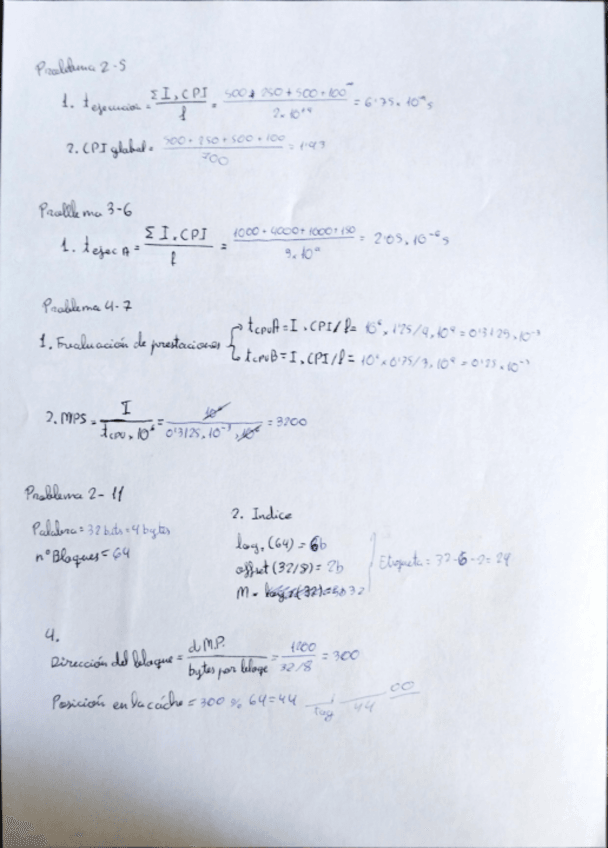 Problema 2-5
1. t ejecución = Σ I . CPI / f = 500 + 250 + 500 + 100 / 2 . 10 = 6'75 . 10 s
2. CPI global = 500 + 250 + 500 + 100 / 700 = 1'93
Problema 3-6
1. t ejec A = Σ I . CPI / f = 1000 + 4000 + 1000 + 150 / = 2'05 . 10⁻⁶ s
Problema 4-7
1. Evaluación de prestaciones
t CPU A = I . CPI / f = 10⁶ . 1'25 / 4 . 10⁹ = 0'3125 . 10⁻³
t CPU B = I . CPI / f = 10⁶ x 0'75 / 3 . 10⁹ = 0'25 . 10⁻³
2. MPS = I / t CPU . 10⁶ = 10⁶ / 0'3125 . 10⁻³ . 10⁶ = 3200
Problema 2-11
Palabra = 32 bits = 4 bytes
nº Bloques = 64
2. Indice
log₂ (64) = 6b
offset (32/8) = 2b
M = 32
Etiqueta = 32-6-2 = 24
4.
Dirección del bloque = d M.P. / bytes por bloque = 1200 / 32/8 = 300
Posición en la cáche = 300 % 64 = 44
tag 44 00